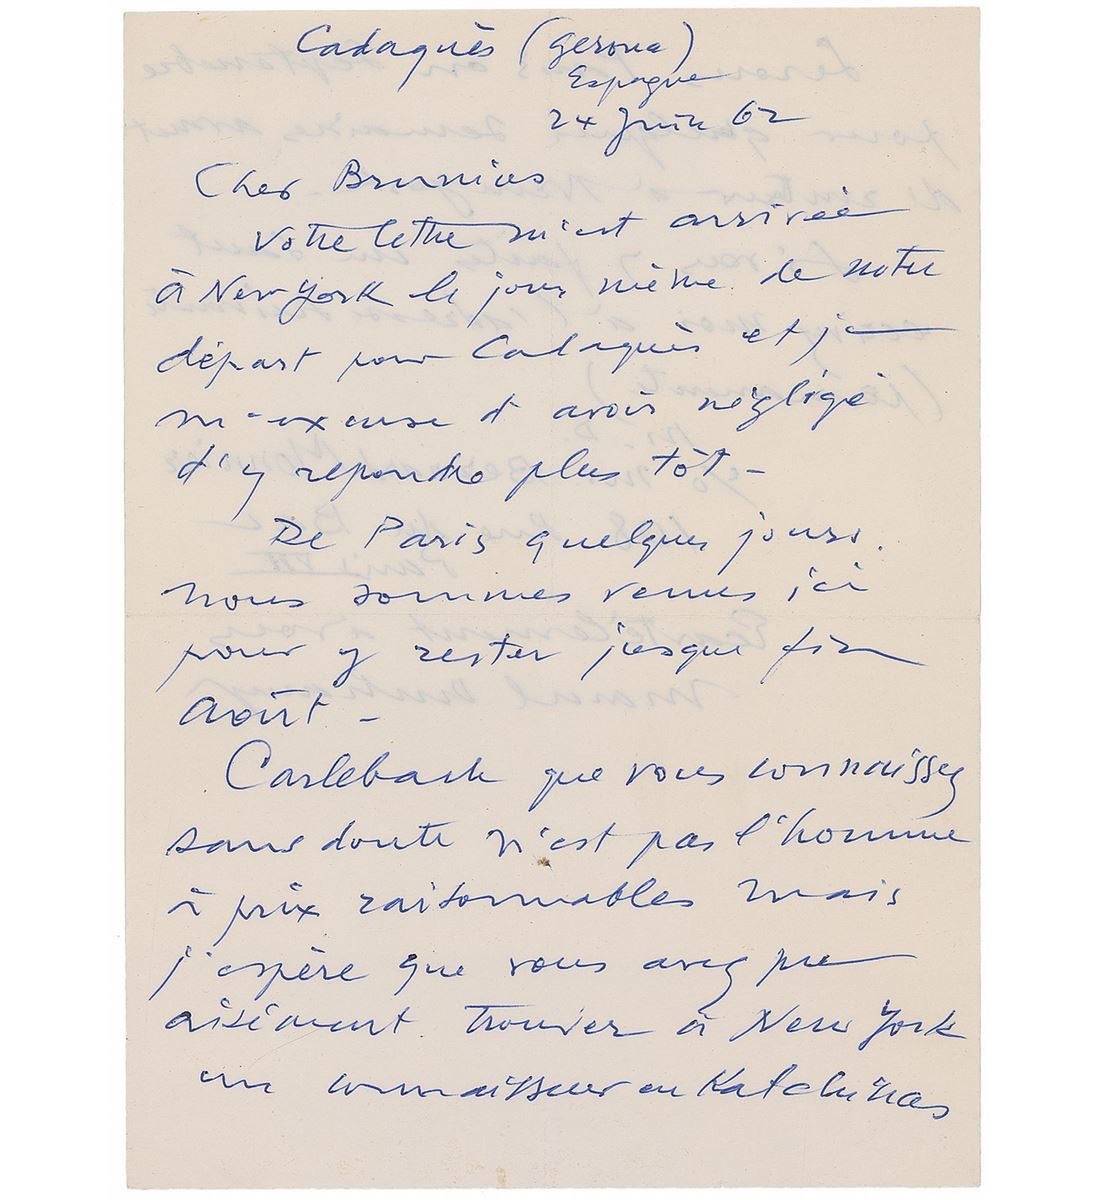 Cadaquès (Gerona)
Espagne
24 Juin 62
Cher Brunius
Votre lettre m'est arrivée
à New York le jour même de notre
départ pour Cadaquès et je
m'excuse d'avoir négligé
d'y repondre plus tôt -
De Paris quelques jours.
nous sommes venus ici
pour y rester jusque fin
août -
Carlebach que vous connaissez
sans doute n'est pas l'homme
à prix raisonnables mais
j'espère que vous avez pu
aisément trouver à New York
un connaisseur en Katchinas